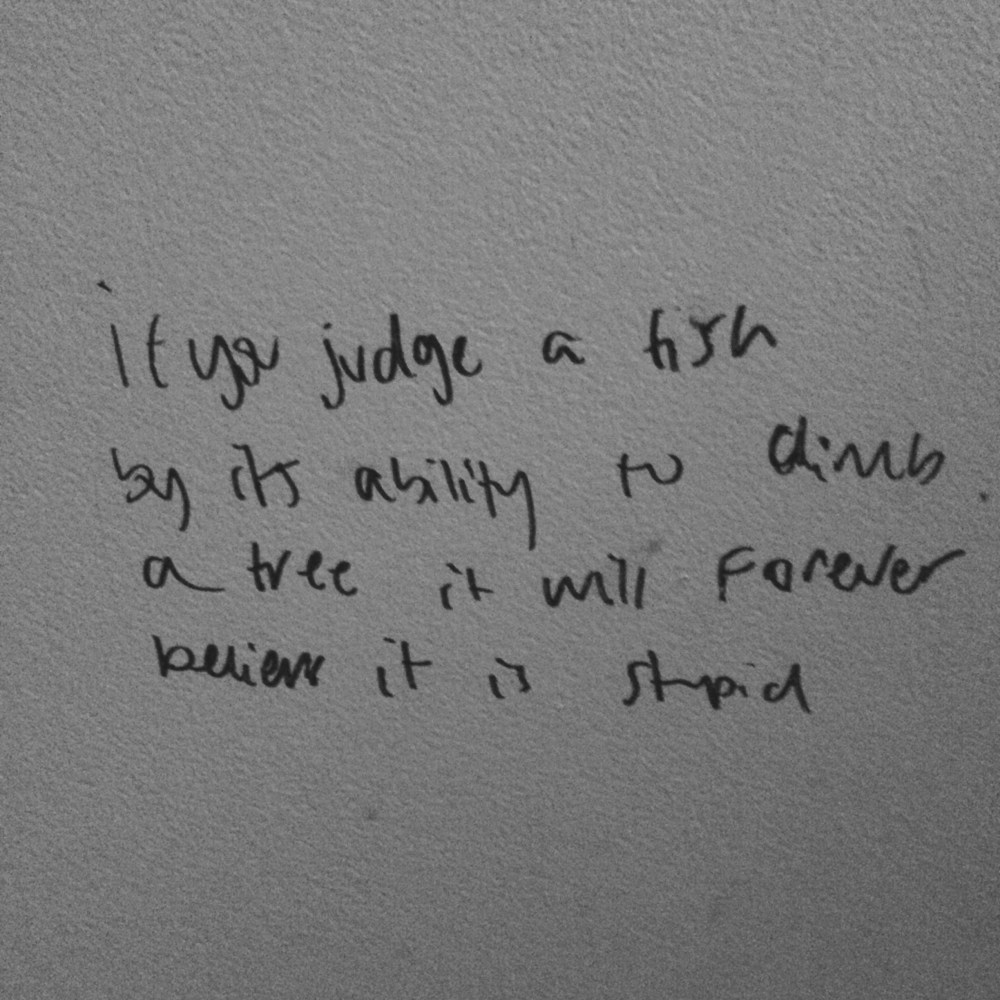 if you judge a fish
by its ability to climb
a tree it will Forever
believe it is stupid